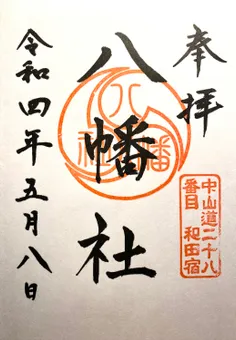 奉拝
中山道二十八
番目 和田宿
八幡社
八幡社
令和四年五月八日